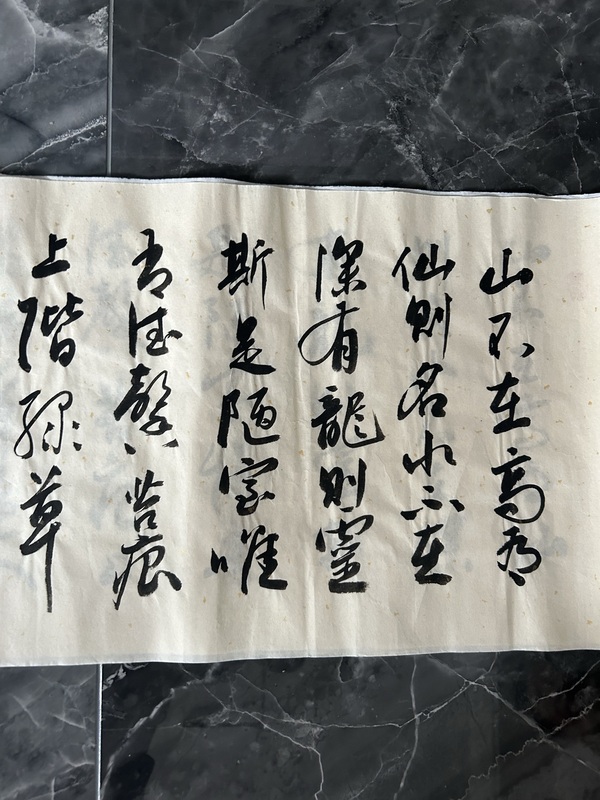 山不在高有
仙則名水不在
深有龍則靈
斯是陋室唯
吾德馨苔痕
上階綠草